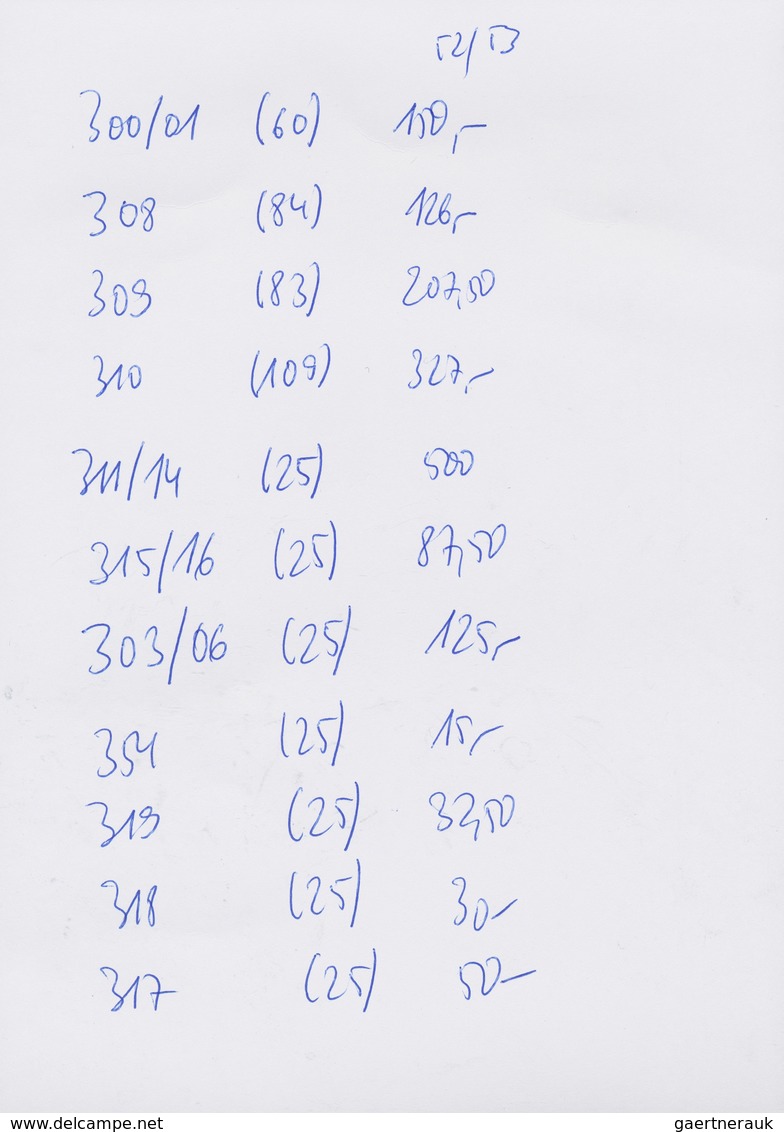 52/53
300/01 (60) 150,-
308 (84) 126,-
309 (83) 207,50
310 (109) 327,-
311/14 (25) 500
315/16 (25) 87,50
303/06 (25) 125,-
354 (25) 15,-
319 (25) 32,50
318 (25) 30-
317 (25) 50-
www.delcampe.net
gaertnerauk